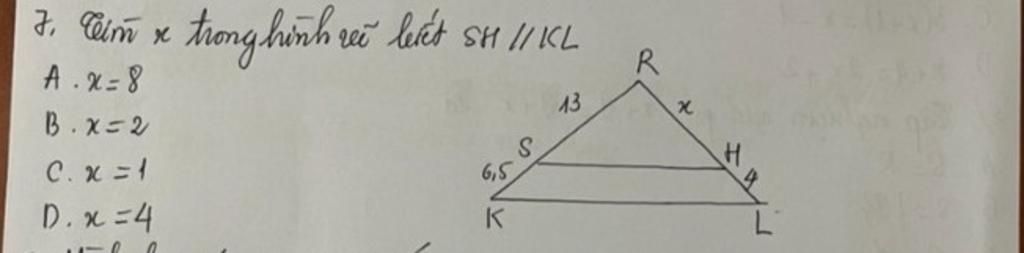 7. Tìm x trong hình vẽ biết SH // KL
A. x = 8
B. x = 2
C. x = 1
D. x = 4
R
13
x
S
H
6,5
4
K
L